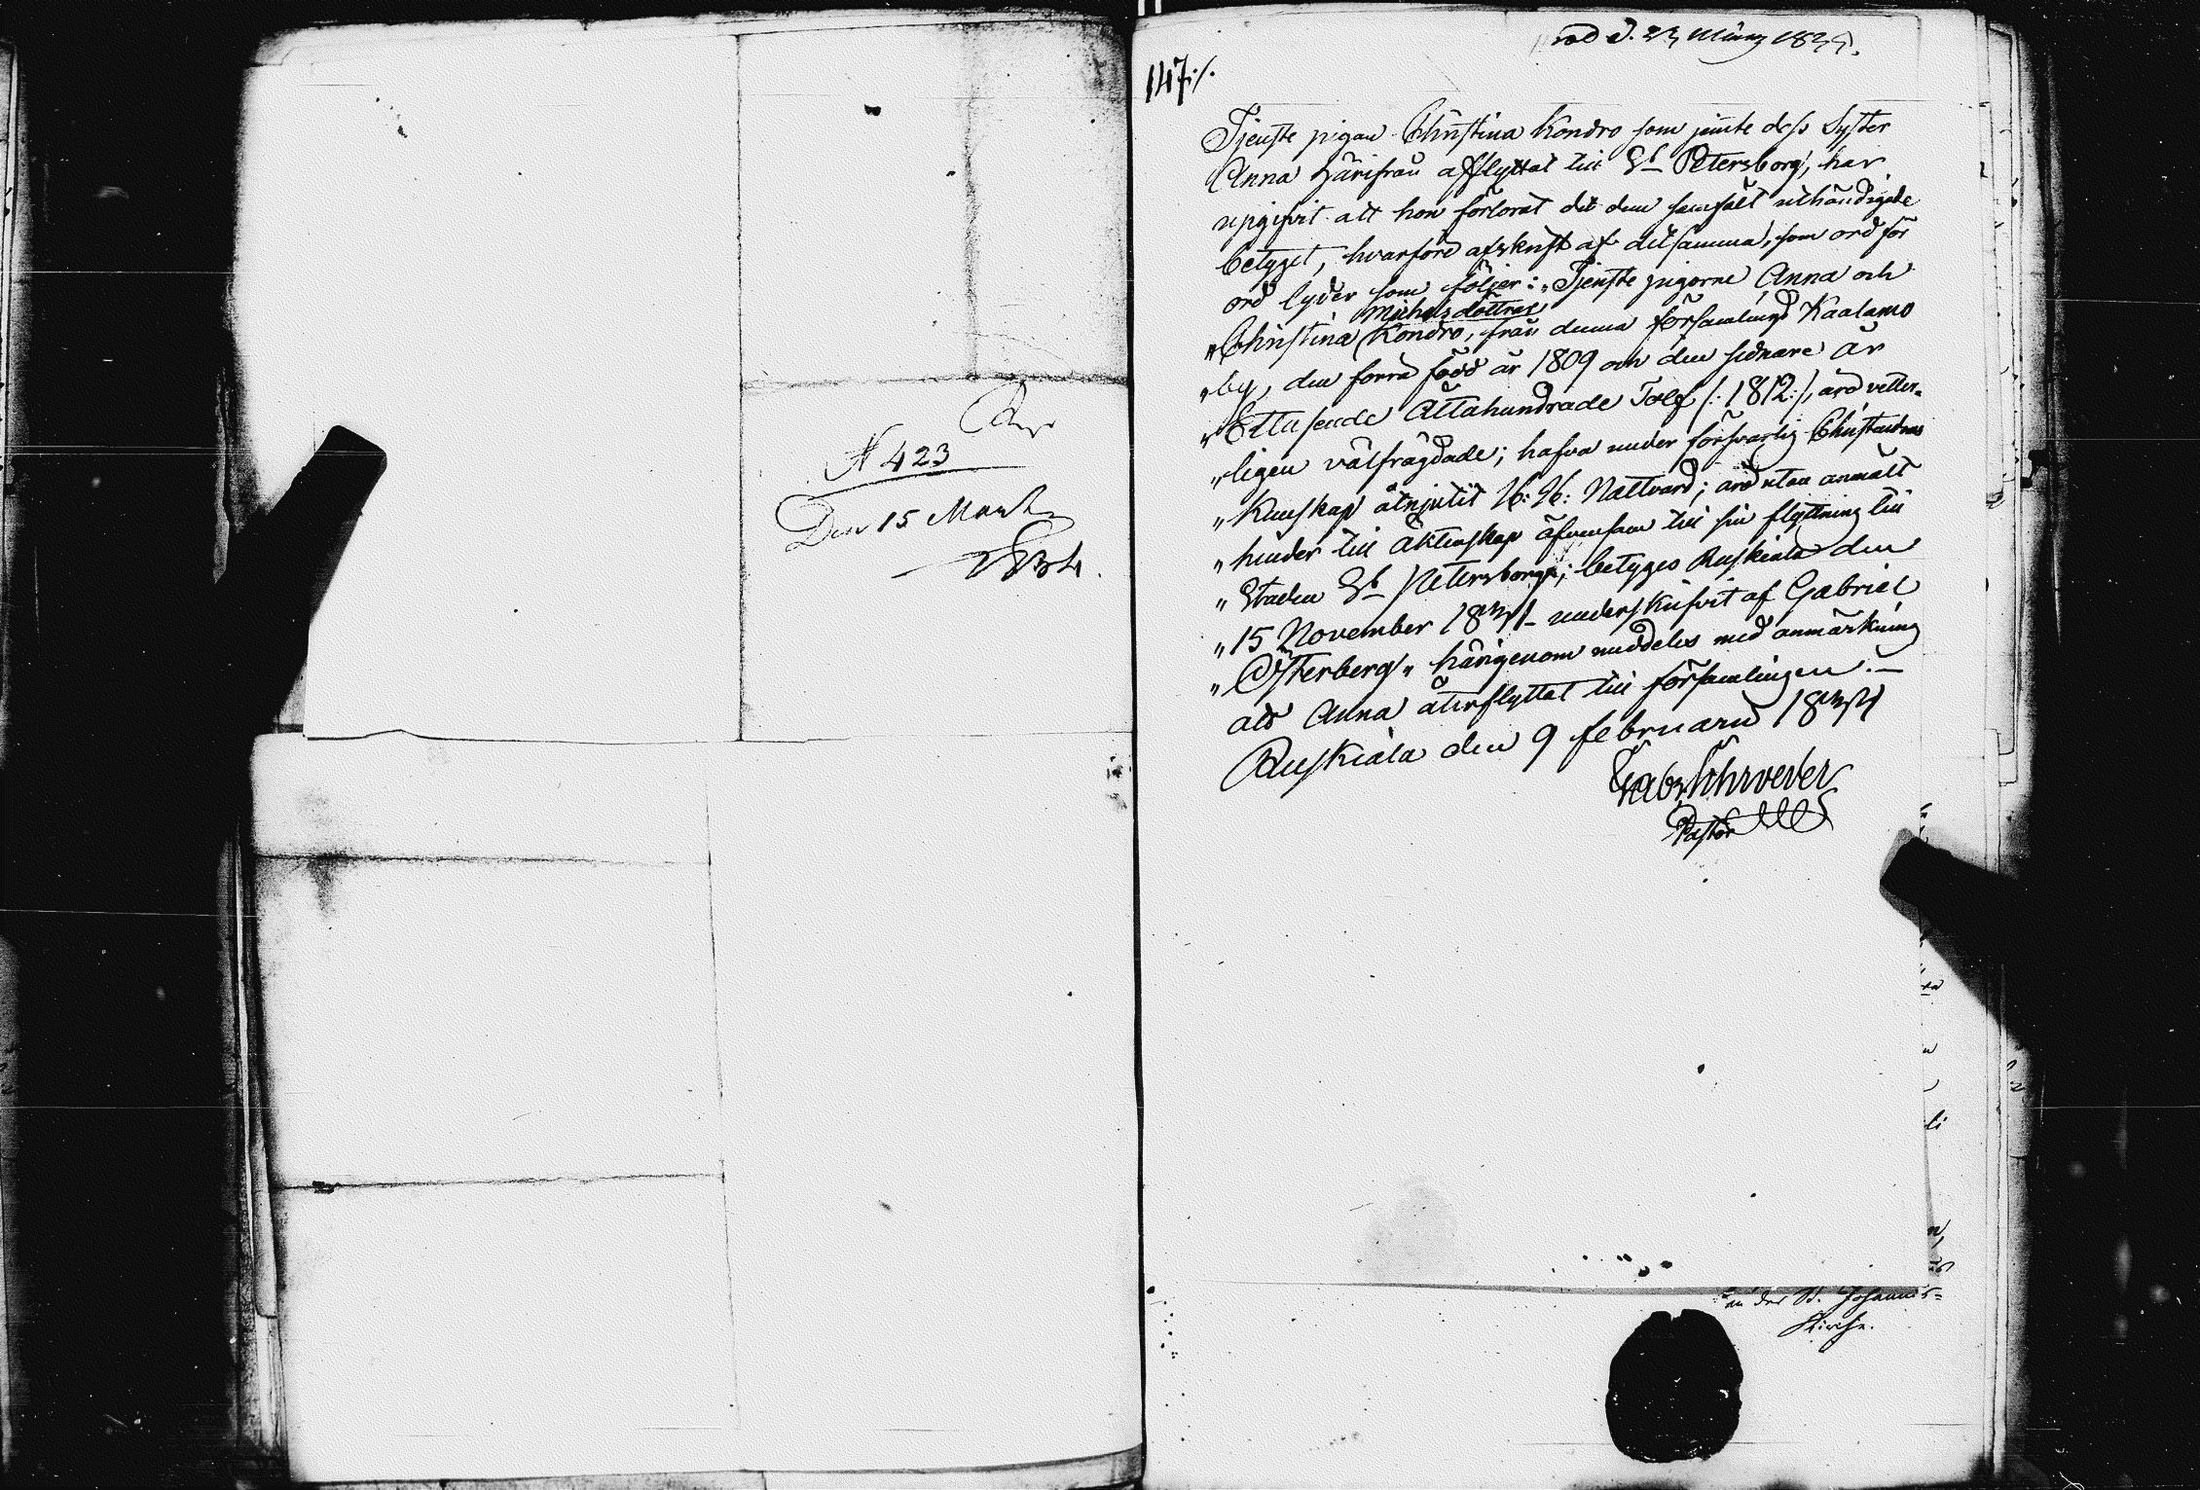 N 423
Den 15 Martz
1834.
d. 23 März 1834.
147./.
Tjenste pigan Christina Kondro som jemte dess Syster
Anna härifrån afflyttat till St Petersborg, har
upgifvit att hon förlorat det dem samfält uthändigade
betyget, hvarföre afskrift af detsamma, som ord för
ord lyder som följer: „Tjenste pigorne Anna och
Michelsdöttrar
„Christina Kondro, från denna församlings Kaalamo
„by, den förra född år 1809 och den sednare år
„Ettusende Åttahundrade Tolf /:1812:/, äro vetter-
„ligen välfrägdade; hafva under försvarlig Christendoms
„Kunskap åtnjutit H: H: Nattvard; äro utan anmält
„hinder till äktenskap äfvensom till sin flyttning till
„Staden St Petersborg; betyges Ruskiala den
„15 November 1831 underskrifvit af Gabriel
„Österberg„ härigenom meddeles med anmärkning
att Anna återflyttat till församlingen.—
Ruskiala den 9 februarii 1834
Gabr Schroeder
Pastor
an der St. Johannis-
Kirche.